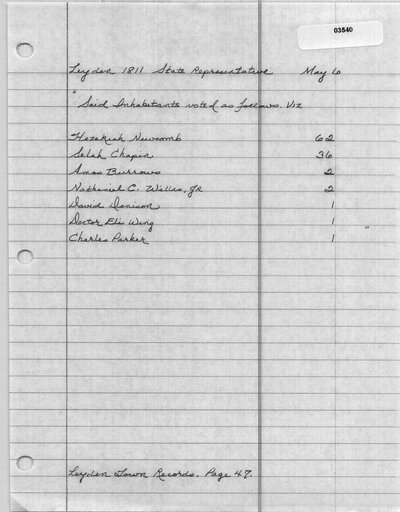 03540
Leyden 1811 State Representative May 6
" Said Inhabitants voted as follows. Viz
Hezekiah Newcomb 62
Selah Chapin 36
Amos Burrows 2
Nathaniel C. Willis, Jr 2
David Denison 1
Doctor Eli Wing 1
Charles Parker 1 "
Leyden Town Records. Page 47.